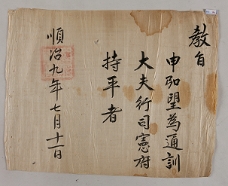 教旨
申弘望為通訓
大夫行司憲府
持平者
順治九年七月十一日